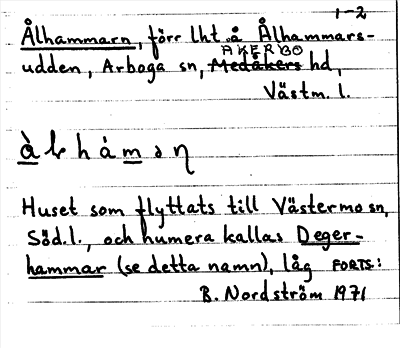 1-2
Ålhammarn, förr lht å Ålhammars-
ÅKERBO
udden, Arboga sn, Medåkers hd,
Västm. l.
àlhámən
Huset som flyttats till Västermo sn,
Söd.l., och numera kallas Deger-
hammar (se detta namn), låg FORTS:
B. Nordström 1971